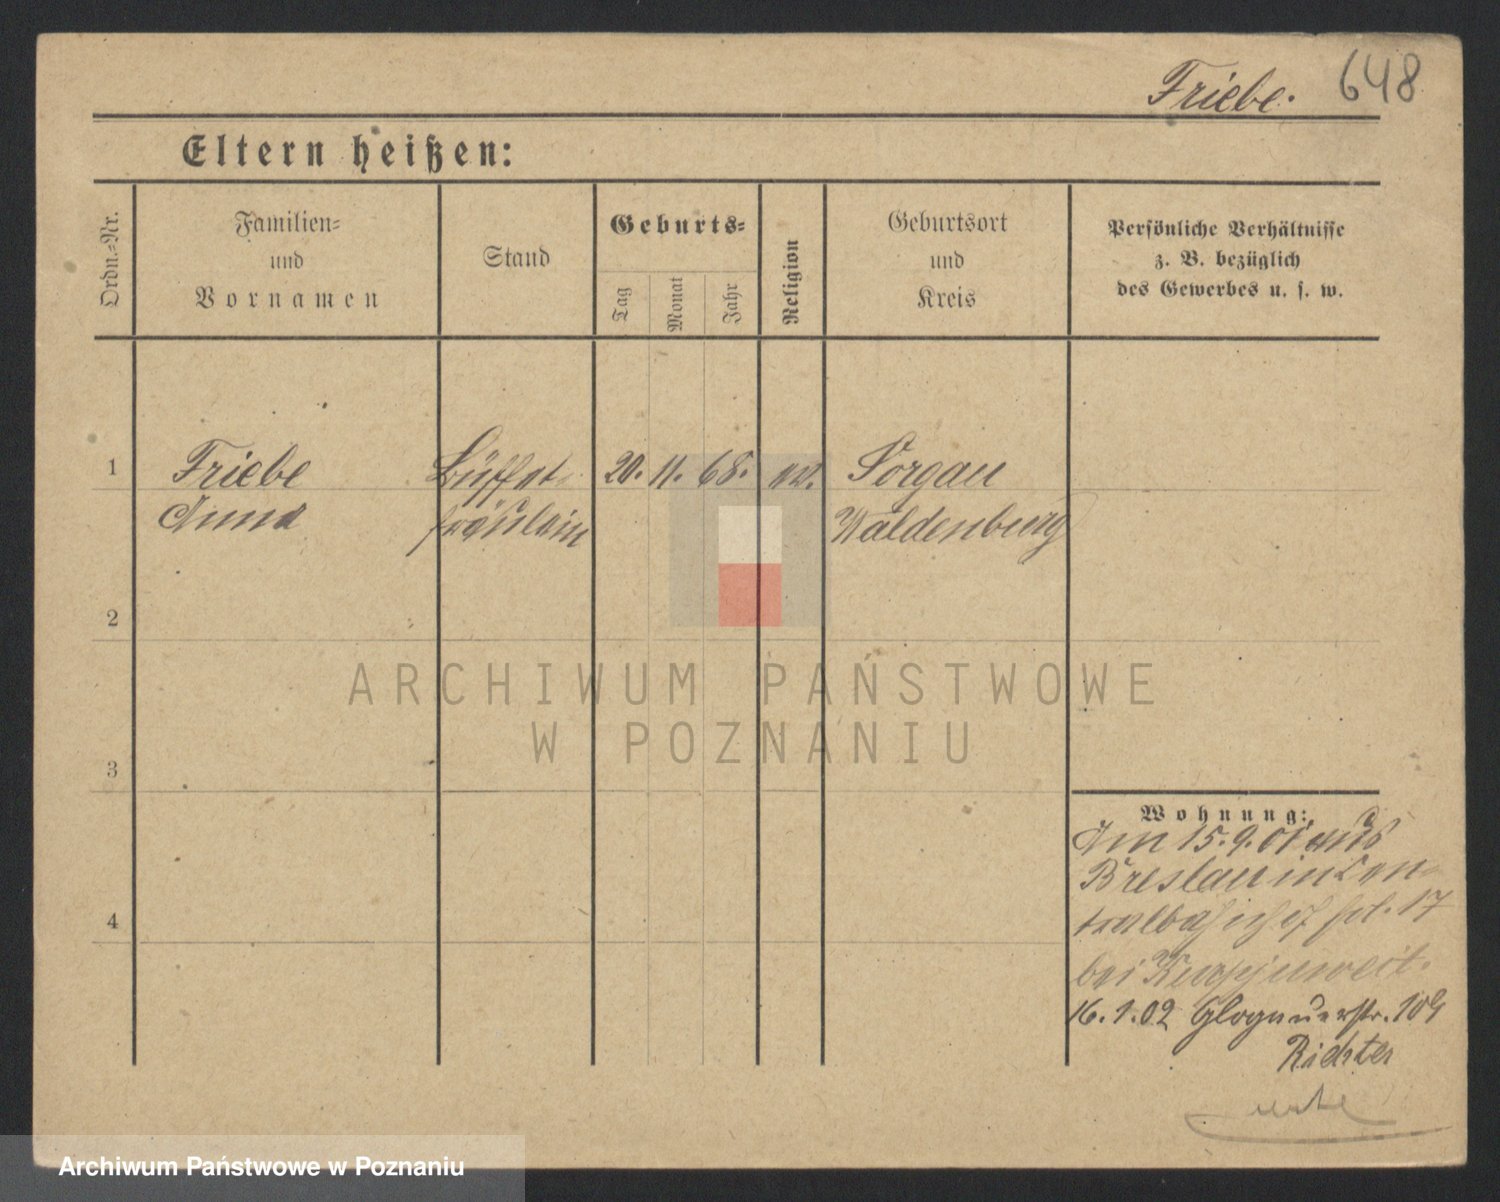 Friebe. 648
Eltern heißen:
Ordn.-Nr.
Familien-
und
Vornamen
Stand
Geburts-
Tag
Monat
Jahr
Religion
Geburtsort
und
Kreis
Persönliche Verhältnisse
z. B. bezüglich
des Gewerbes u. s. w.
1
Friebe
Anna
Büffet-
fräulein
20. 11. 68. ev.
Sorgau
Waldenburg
2
3
4
ARCHIWUM PAŃSTWOWE
W POZNANIU
Wohnung:
Am 15.9.01 aus
Breslau in Zen-
tralbahnhof 17
bei
16.1.02 Glogauerstr. 109
Richter
Archiwum Państwowe w Poznaniu